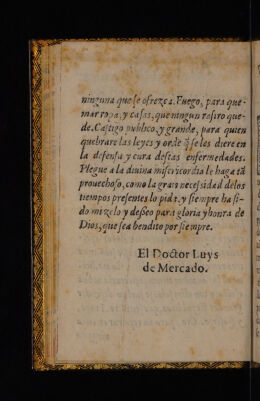 ninguna que se ofrezca. Fuego, para que-
mar ropa, y casas, que ningun rastro que-
de. Castigo publico, y grande, para quien
quebrare las leyes y orde q̃ se les diere en
la defensa y cura destas enfermedades.
Plegue a la diuina misericordia le haga tã
prouechoso, como la gran necessidad delos
tiempos presentes lo pide, y siempre ha si-
do mi zelo y desseo para gloria y honra de
Dios, que sea bendito por siempre.
El Doctor Luys
de Mercado.